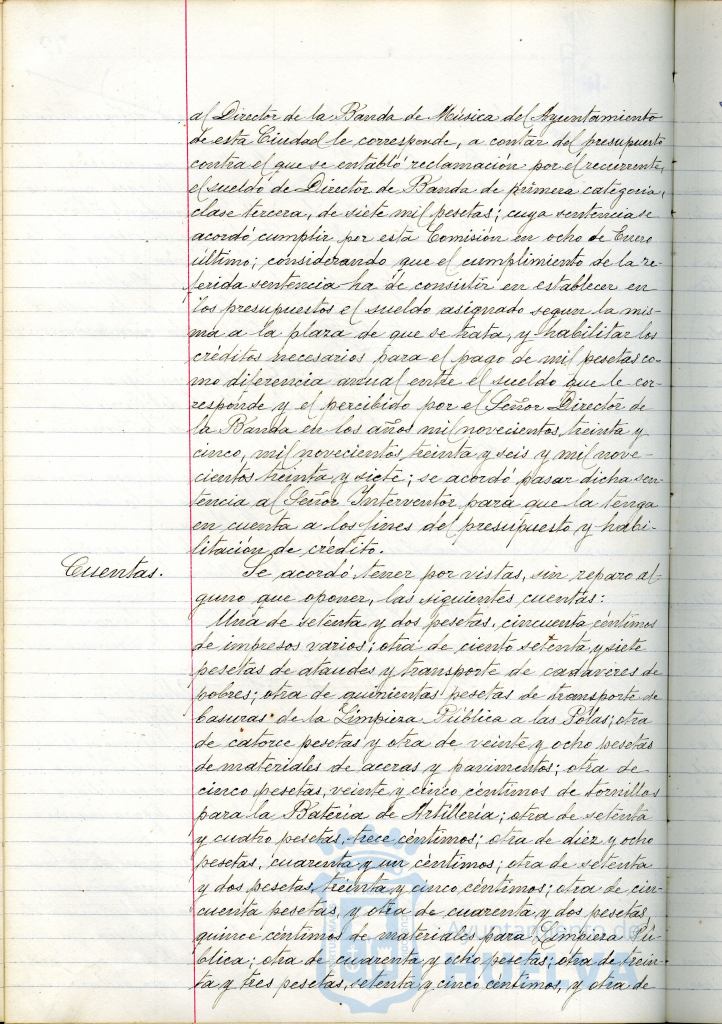 al Director de la Banda de Música del Ayuntamiento
de esta Ciudad le corresponde, a contar del presupuesto
contra el que se entabló reclamación por el recurrente,
el sueldo de Director de Banda de primera categoria,
clase tercera, de siete mil pesetas; cuya sentencia se
acordó cumplir por esta Comisión en ocho de Enero
último; considerando que el cumplimiento de la re-
ferida sentencia ha de consistir en establecer en
los presupuestos el sueldo asignado segun la mis-
ma a la plaza de que se trata, y habilitar los
créditos necesarios para el pago de mil pesetas co-
mo diferencia anual entre el sueldo que le cor-
responde y el percibido por el Señor Director de
la Banda en los años mil novecientos treinta y
cinco, mil novecientos treinta y seis y mil nove-
cientos treinta y siete; se acordó pasar dicha sen-
tencia al Señor Interventor para que la tenga
en cuenta a los fines del presupuesto y habi-
litación de crédito.
Cuentas. Se acordó tener por vistas, sin reparo al-
guno que oponer, las siguientes cuentas:
Una de setenta y dos pesetas, cincuenta céntimos
de impresos varios; otra de ciento setenta y siete
pesetas de ataudes y transporte de cadáveres de
pobres; otra de quinientas pesetas de transporte de
basuras de la Limpieza Pública a las Polas; otra
de catorce pesetas y otra de veinte y ocho pesetas
de materiales de aceras y pavimentos; otra de
cinco pesetas, veinte y cinco céntimos de tornillos
para la Bateria de Artilleria; otra de setenta
y cuatro pesetas, trece céntimos; otra de diez y ocho
pesetas, cuarenta y un céntimos; otra de setenta
y dos pesetas, treinta y cinco céntimos; otra de cin-
cuenta pesetas, y otra de cuarenta y dos pesetas,
quince céntimos de materiales para Limpieza Pú-
blica; otra de cuarenta y ocho pesetas; otra de trein-
ta y tres pesetas, setenta y cinco céntimos, y otra de
Ayuntamiento de
HUELVA